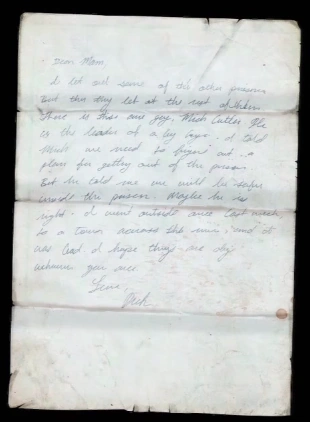 Dear Mom
I let out some of the other prisoners
But this they let out the rest of them
There is this one guy, Mitch Cutler. He
is the leader of a big
I told
Mitch we need to figure out a
plan for getting out of the prison
But he told me we will be safer
inside the prison. Maybe he is
right. I went outside once last week
to a town across the river and it
was bad. I hope things are ok
where you are
Love,